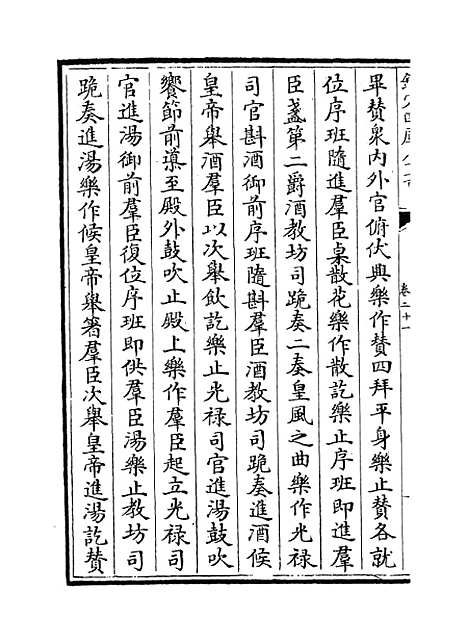 欽定四庫全書
卷二十一
畢贊衆内外官俯伏興樂作贊四拜平身樂止贊各就
位序班隨進羣臣桌散花樂作散訖樂止序班即進羣
臣盞第二爵酒教坊司跪奏二奏皇風之曲樂作光禄
司官斟酒御前序班隨斟羣臣酒教坊司跪奏進酒候
皇帝舉酒羣臣以次舉飲訖樂止光禄司官進湯鼓吹
饗節前導至殿外鼓吹止殿上樂作羣臣起立光禄司
官進湯御前羣臣復位序班即供羣臣湯樂止教坊司
跪奏進湯樂作候皇帝舉箸羣臣次舉皇帝進湯訖贊